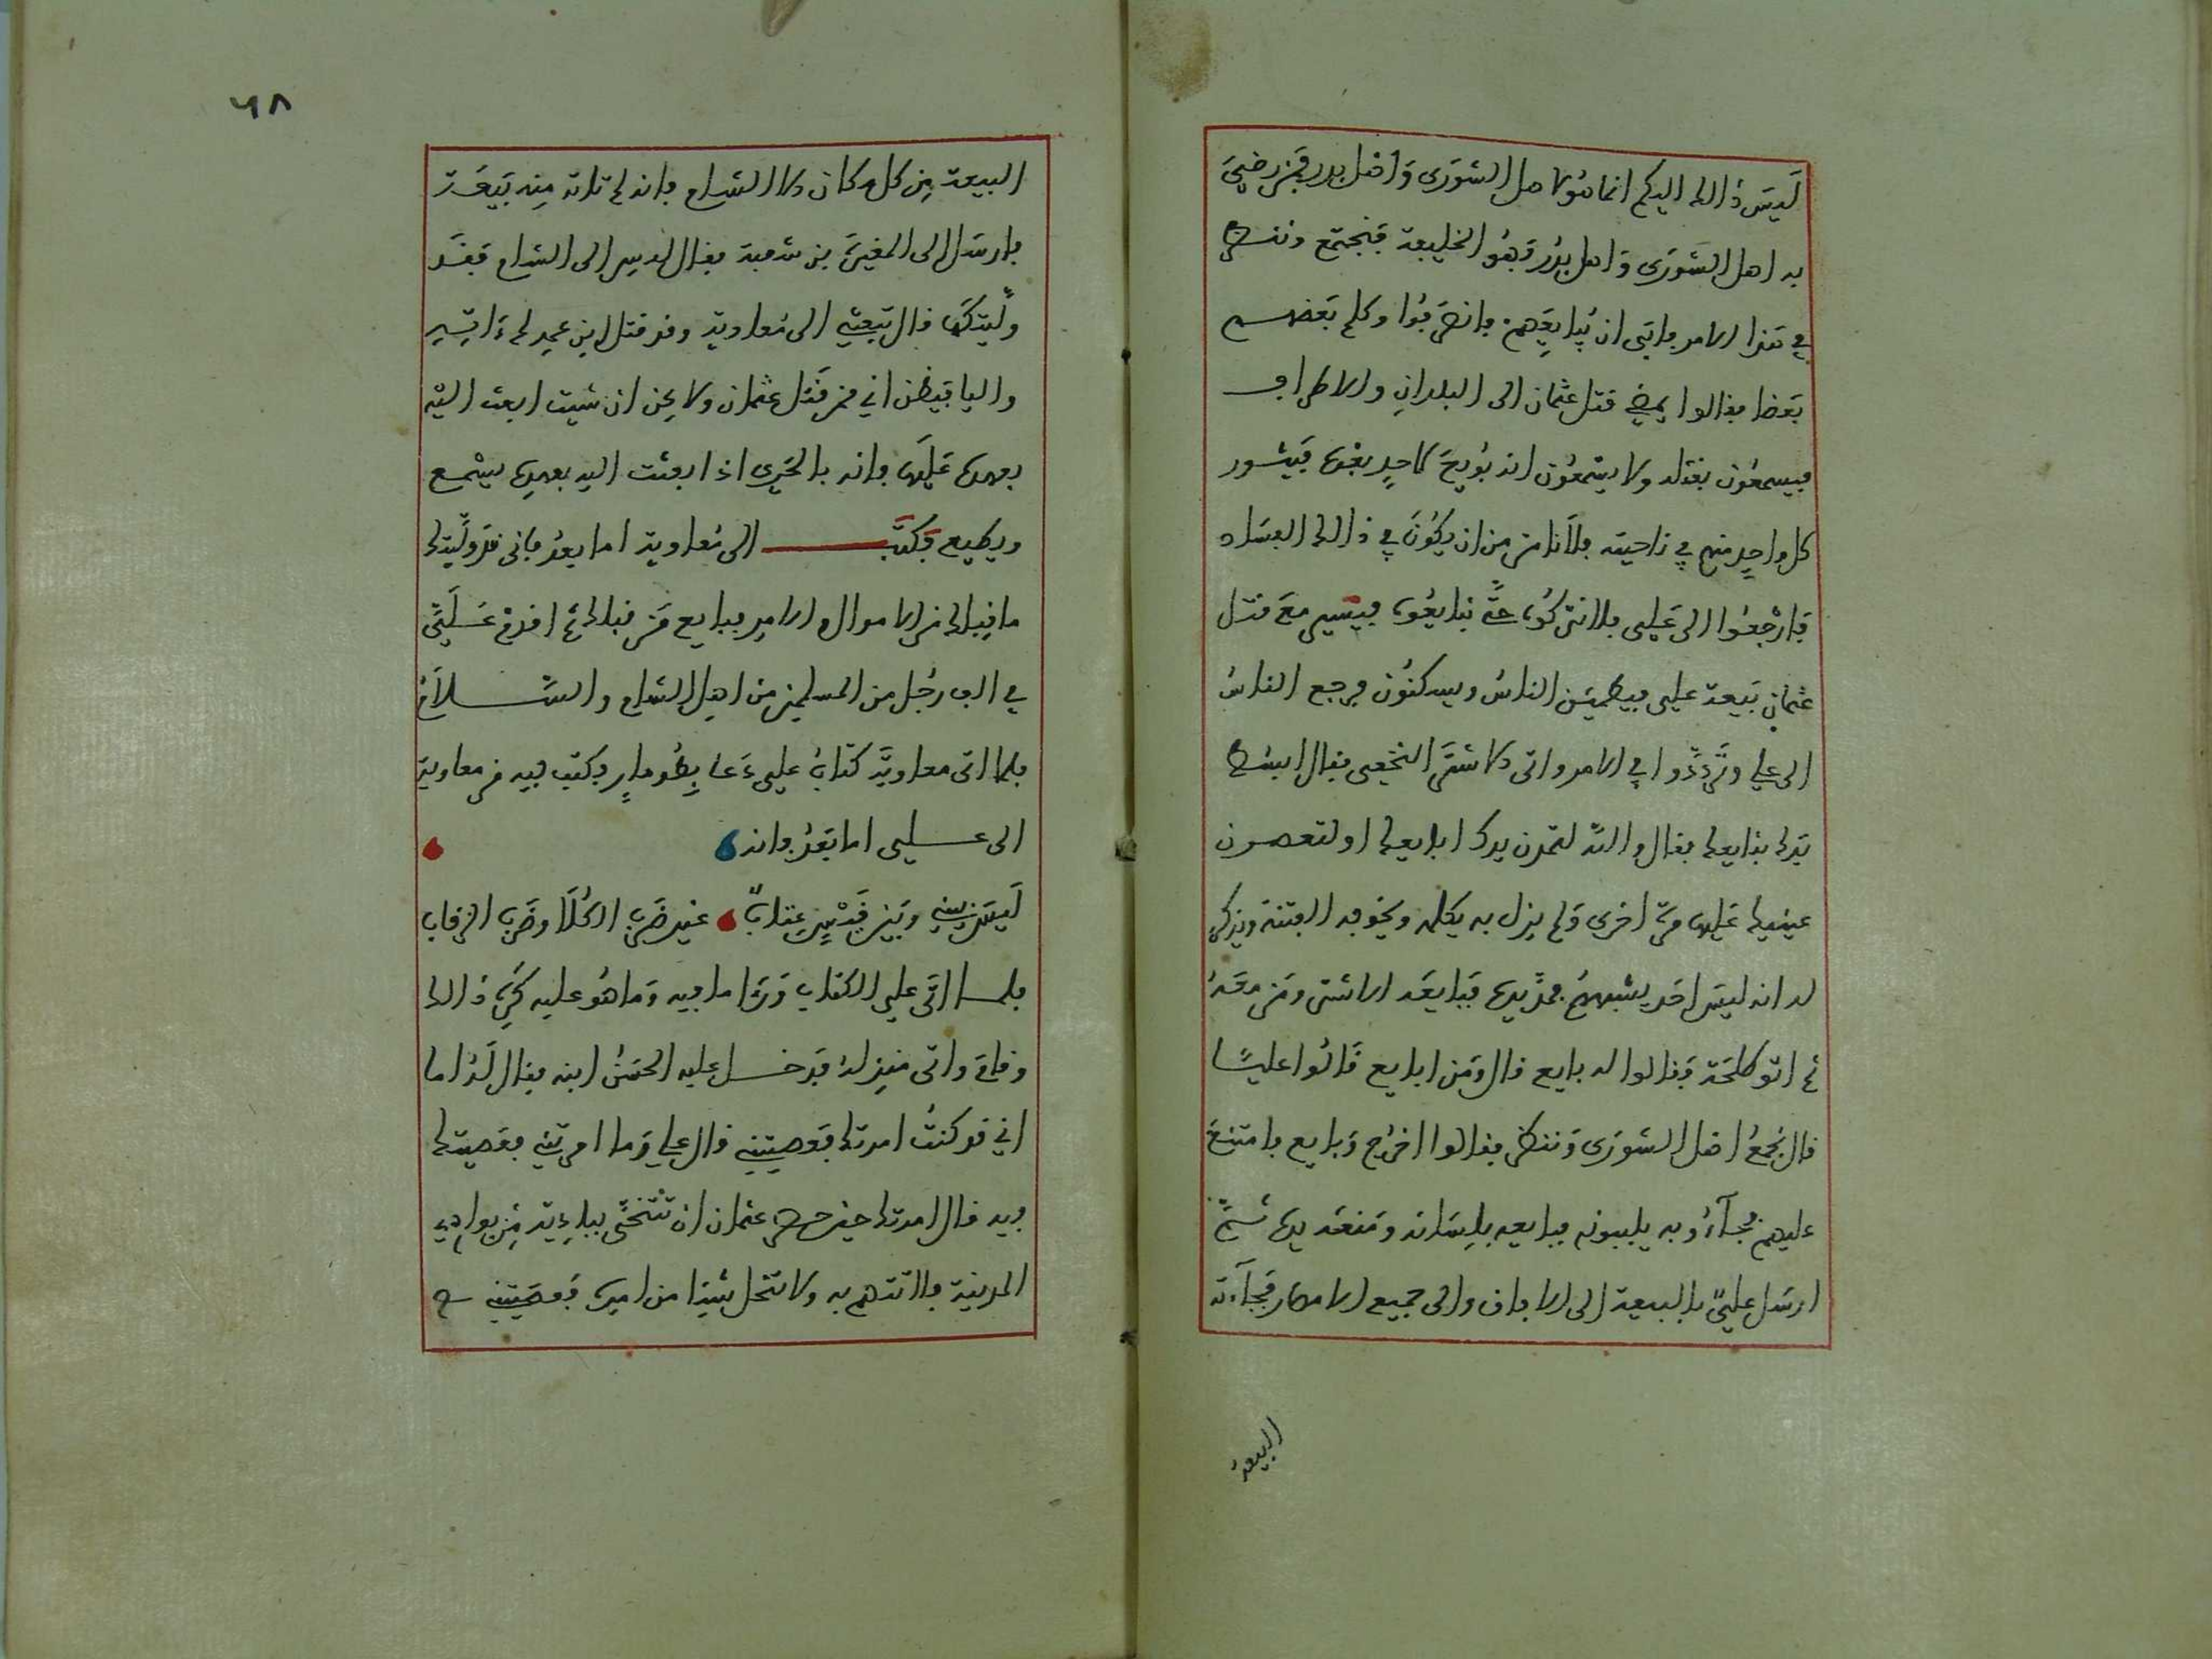 لَيسَ ذٰالك اليكم انما هُو لاهل الشورَى وَاهل بدر فمَن رضيَ
به اهل الشورَى وَاهل بدر فهُو الخليفة فنجتمع وننظر
في هَذا الامر فابَى ان يُبايعَهم فانصَرفُوا وكلم بَعضهم
بَعضا فقالوا يمضي قتل عثمان الى البلدانِ والاطراف
فيسمعُون بقتله ولا يسمعُون انه بُويعَ لاحدٍ بعْده فيثور
كل واحدٍ منهم في ناحيته فلا نامن من ان يكُونَ في ذالك الفسَاد
فارْجعُوا الى عَلي فلا نتركُه حتَّى نبايعُوه فيسير معَ قتل
عثمان بَيعة علي فيطميَن الناسُ ويسكنُون فرجع الناسُ
الى علي وتَردَّدُوا في الامر واتى الاشتَر النخَعي فقال ابسُط
يَدك نبايعك فقال والله لتمدن يدك ابايعك او لتعصرن
عينيك عَليها مرة اخرى وَلم يزل به يكلمه ويخوفه الفتنة ويذكر
له انه ليسَ احَد يشبههُ فمدَّ يدهُ فبايعَه الاشتر ومَن معَهُ
ثم اتو طلحَة فقالوا له بايع قال وَمَن ابايع قالُوا عليًا
قال نجمعُ اهل الشورَى وَننظر فقالوا اخرُج وَبايع فامتنعَ
عليهم فجاءُو به يلببونه فبايعه بلِسَانه وَمنعَه يدهُ ثمَّ
ارسَل عليٌّ بالبيعة الى الافاق والى جميع الامصار فجاءته
البيعة
٦٨
البيعة مِن كل مكان الا الشام فانه لم تاته مِنه بَيعَة
فارسَل الى المغيرَة بن شعبة فقال له سر الى الشام فقد
ولَّيتكهَا قال تبعثني الى مُعاوية وقد قتل ابن عمه لم
والي فيظن اني من قتَل عثمان ولاكِن ان شيت ابعث اليه
بعهده عَليها فانه بالحَرِي اذا بعثت اليه بعهده يسْمع
ويطيع فكتَب الى مُعاوية اما بعدُ فاني قد ولّيتك
ما قبلك من الاموال والامر فبايع مَن قبلك ثم اقدم عَلَيَّ
في الف رَجُل من المسلمين من اهل الشام والسَّلامُ
فلما اتى معاويَة كتابُ علي دَعا بطُومارٍ فكتب فيه من معاوية
الى علي اما بَعدُ فانه
لَيسَ بيني وبَين قيْسٍ عِتابٌ غير ضَرب الكُلا وضرب الرقاب
فلما اتى علي الكتاب وَرءا ما فيه وَما هُو عليه كَرِه ذٰالك
وقامَ واتى منزلهُ فدخل عليه الحسَنُ ابنه فقال لَهُ اما
اني قد كنتُ امرتك فعصيتني قال علي وَما امرتني فعَصيتك
فيه قال امرتك حين حصر عثمان ان تتنحَّى ببادِية مِن بوادي
المدينة فلا تتهم به ولا تتحل شيْئا من امره فعصَيتني